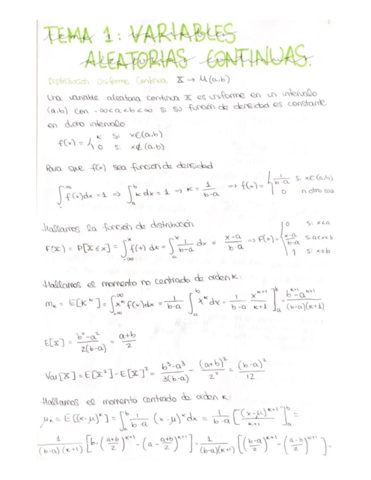 TEMA 1: VARIABLES
ALEATORIAS CONTINUAS.
Distribución Uniforme Continua X → U(a,b)
Una variable aleatoria continua X es uniforme en un intervalo
(a,b) con -∞<a<b<∞ si su función de densidad es constante
en dicho intervalo
f(x) = { K si x∈(a,b)
0 si x∉(a,b)
Para que f(x) sea función de densidad
∫_{-∞}^{∞} f(x)dx = 1 ⇒ ∫_a^b K dx = 1 ⇒ K = 1/(b-a) ⇒ f(x) = { 1/(b-a) si x∈(a,b)
0 en otro caso
Hallamos la función de distribución
F(x) = P[X≤x] = ∫_{-∞}^x f(x) dx = ∫_a^x 1/(b-a) dx = (x-a)/(b-a) ⇒ F(x) = { 0 si x<a
(x-a)/(b-a) si a≤x<b
1 si x≥b
Hallamos el momento no centrado de orden K:
m_K = E[X^K] = ∫_{-∞}^{∞} x^K f(x)dx = 1/(b-a) ∫_a^b x^K dx = 1/(b-a) [x^{K+1}/(K+1)]_a^b = (b^{K+1}-a^{K+1})/((b-a)(K+1))
E[X] = (b²-a²)/(2(b-a)) = (a+b)/2
Var[X] = E[X²]-E[X]² = (b³-a³)/(3(b-a)) - (a+b)²/2² = (b-a)²/12
Hallamos el momento centrado de orden K:
μ_K = E[(X-μ)^K] = ∫_a^b 1/(b-a) (x-μ)^K dx = 1/(b-a) [(x-μ)^{K+1}/(K+1)]_a^b =
1/((b-a)(K+1)) [(b-(a+b)/2)^{K+1} - (a-(a+b)/2)^{K+1}] = 1/((b-a)(K+1)) [((b-a)/2)^{K+1} - ((a-b)/2)^{K+1}].